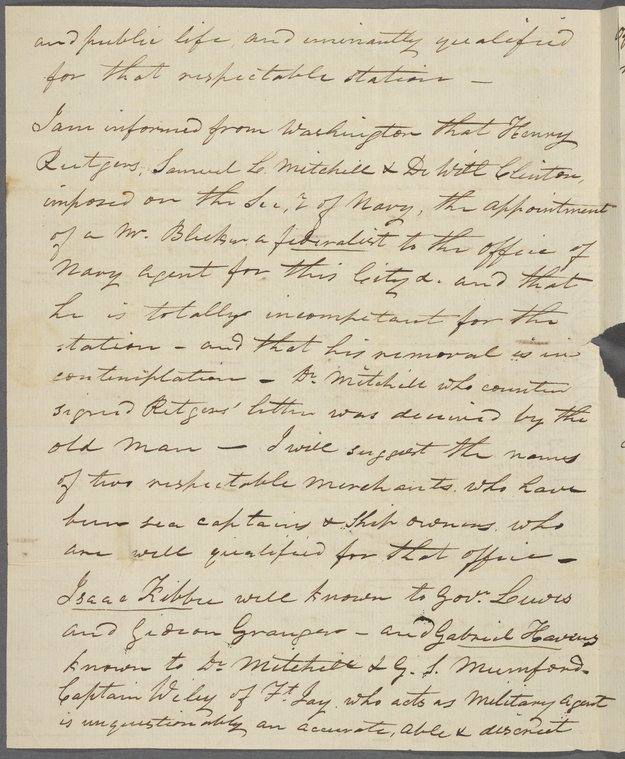 and public life, and eminantly qualified
for that respectable station —
I am informed from Washington that Henry
Rutgers, Samuel L. Mitchill & De Witt Clinton,
imposed on the Sec,y of Navy, the appointment
of a Mr. Blecker a federalist to the office of
Navy agent for this City &. and that
he is totally incompetant for the
station – and that his removal is in
contemplation – Dr. Mitchill who counter
signed Rutgers' letter was deceived by the
old man — I will suggest the names
of two respectable merchants. who have
been sea captains & Ship owners. who
are well qualified for that office –
Isaac Kibbe well known to Govr. Lewis
and Gideon Granger – and Gabriel Havens
known to Dr. Mitchill & G. S. Mumford –
Captain Wiley of Ft. Jay. who acts as Military Agent
is unquestionably an accurate, able & discreet